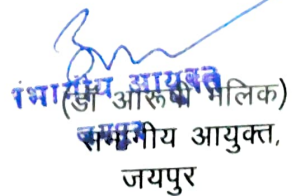 संभागीय आयुक्त
(डॉ आरूषी मलिक)
जयपुर
संभागीय आयुक्त,
जयपुर